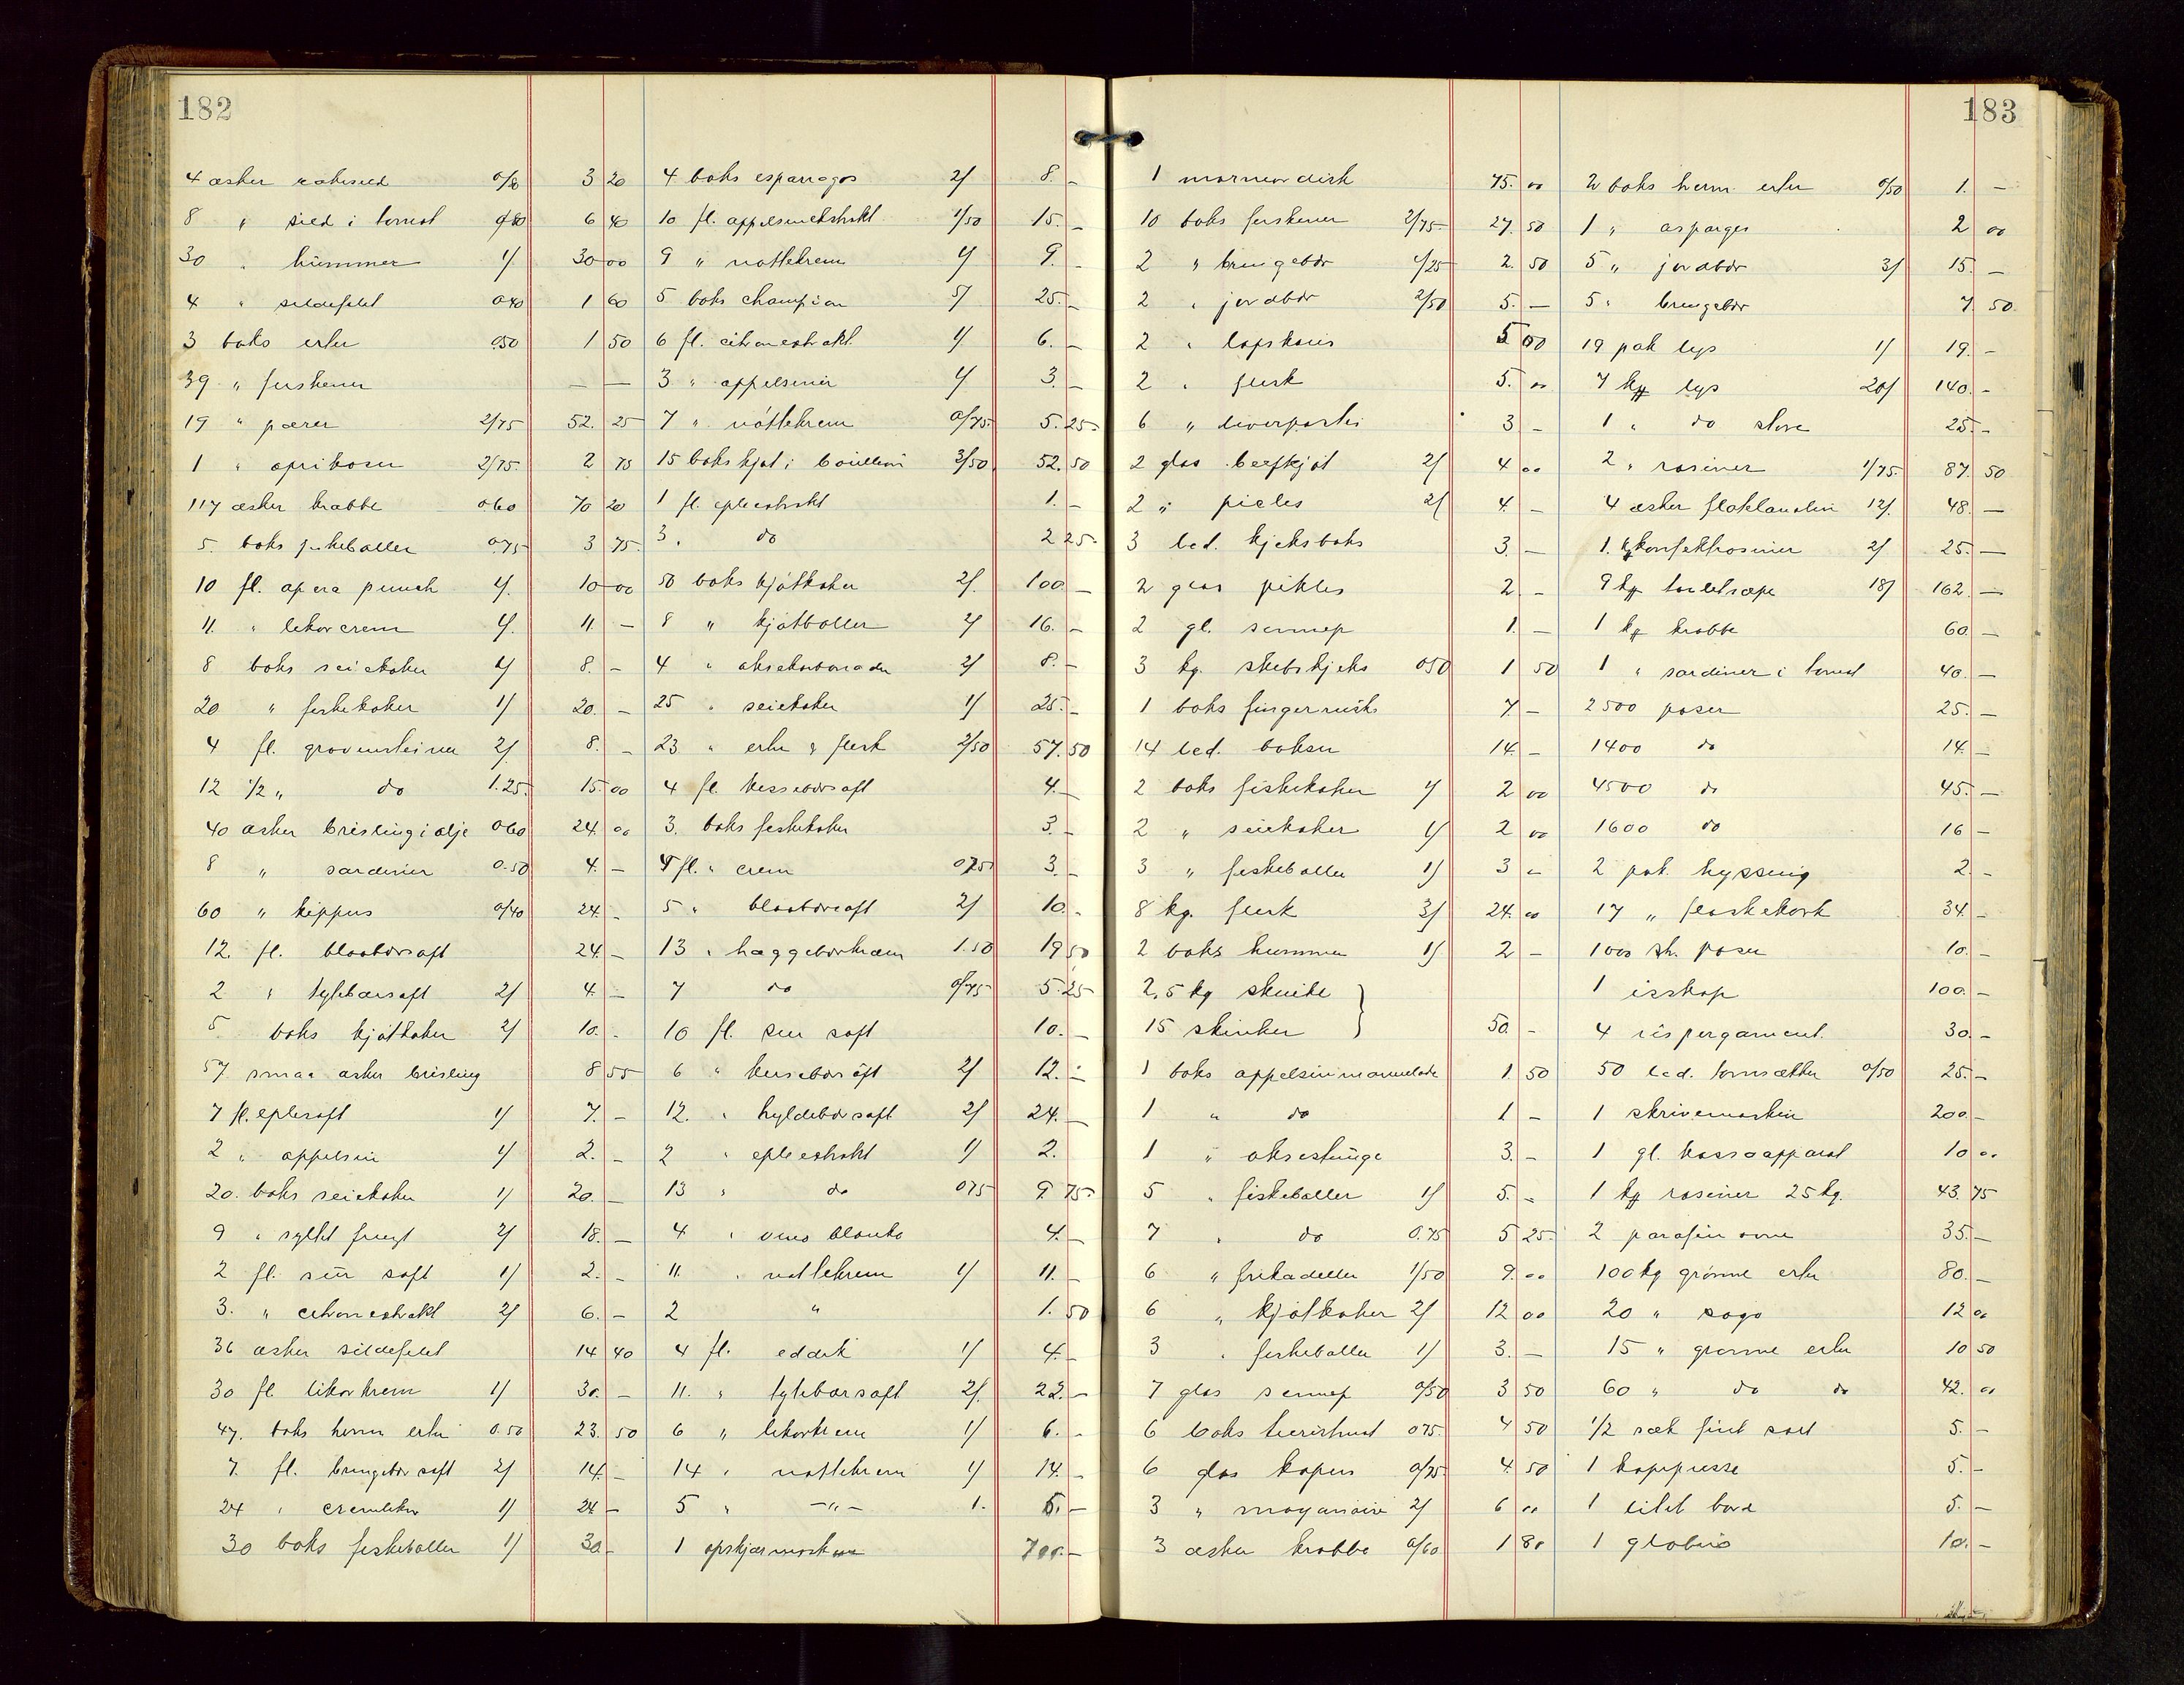 182
4 æsker røkesild 0/80 3 20
8 " sild i tomat 0/80 6 40
30 " hummer 1/ 30 00
4 " sildefilet 0.40 1 60
3 boks erter 0.50 1 50
39 " ferskener — —
19 " pærer 2/75 52. 25
1 " aprikoser 2/75 2 75
117 æsker krabbe 0.60 70 20
5 boks fiskeboller 0.75 3 75
10 fl. opera punch 1/ 10 00
11 " likørcrem 1/ 11 -
8 boks seiekaker 1/ 8. -
20 " fiskekaker 1/ 20. -
4 fl. gravensteiner 2/ 8. -
12 1/2 " do 1.25 15. 00
40 æsker brisling i olje 0.60 24. 00
8 " sardiner 0.50 4. -
60 " kippers 0/40 24. -
12 fl. blaabærsaft 24. -
2 " tytebærsaft 2/ 4. -
5 boks kjøtkaker 2/ 10. -
57 smaa æsker brisling 8 55
7 fl. eplesaft 1/ 7. -
2 " appelsin 1/ 2. -
20 boks seiekaker 1/ 20. -
9 " syltet frugt 2/ 18. -
2 fl. sur saft 1/ 2. -
3 " citronestrakt 2/ 6. -
36 æsker sildefilet 14 40
30 fl likørkrem 1/ 30. -
47 boks herm erter 0.50 23. 50
7 fl. bringebær saft 2/ 14. -
24 " cremlikør 1/ 24 -
30 boks fiskeboller 1/ 30 -
4 boks esparragos 2/ 8. -
10 fl. appelsinekstrakt 1/50 15. -
9 " nøttekrem 1/ 9. -
5 boks champion 5/ 25. -
6 fl. citronestrakt 1/ 6. -
3 " appelsiner 1/ 3. -
7 " nøttekrem 0/75 5. 25
15 boks kjøt i bouillon 3/50 52. 50
1 fl. epleestrakt 1. -
3 " do 2 25
50 boks kjøtkaker 2/ 100 -
8 " kjøtboller 2/ 16. -
4 " oksekarbonader 2/ 8. -
25 " seiekaker 1/ 25. -
23 " erter & flesk 2/50 57. 50
4 fl. kirsebærsaft 4. -
3 boks fiskekaker 3. -
4 fl. " crem 0.75 3. -
5 " blaabærsaft 2/ 10. -
13 " hæggebærkrem 1.50 19 50
7 do 0/75 5. 25
10 fl. sur saft 10. -
6 " kirsebærsaft 2/ 12. -
12 " hyldebærsaft 2/ 24. -
2 " epleestrakt 1/ 2.
13 " do 0.75 9. 75
4 " vino blanko 4. -
11 " nøttekrem 1/ 11. -
2 " 1. 50
4 fl. eddik 1/ 4. -
11 " tytebærsaft 2/ 22. -
6 " likørkrem 1/ 6. -
14 " nøttekrem 1/ 14. -
5 " -"- 1. 5. -
1 opskjærmaskine 700. -
183
1 marmordisk 75. 00
10 boks ferskener 2/75 27. 50
2 " bringebær 1/25 2. 50
2 " jordbær 2/50 5. -
2 " lapskaus 5 00
2 " flesk 5. 00
6 " leverpostei 3 -
2 glas beefkjøt 2/ 4 00
2 " picles 2/ 4. -
3 led. kjeksboks 3. -
2 glas pikles 2. -
2 gl. sennep 1. -
3 kg. skibskjeks 0.50 1 50
1 boks fingerrusk 7. -
14 led. bokser 14. -
2 boks fiskekaker 1/ 2 00
2 " seiekaker 1/ 2 00
3 " fiskeboller 1/ 3 -
8 kg. flesk 3/ 24. 00
2 boks hummer 1/ 2 -
2,5 kg skinke }
15 skinker } 50. -
1 boks appelsinmarmelade 1. 50
1 " do 1 -
1 " oksestunge 3. -
5 " fiskeboller 1/ 5. -
7 " do 0.75 5 25
6 " frikadeller 1/50 9. 00
6 " kjøtkaker 2/ 12 00
3 " fiskeboller 1/ 3. -
7 glas sennep 0/50 3 50
6 boks turistmat 0.75 4 50
6 glas kapers 0/75 4. 50
3 " mayonaise 2/ 6 00
3 æsker krabbe 0/60 1 80
2 boks herm. erter 0/50 1. -
1 " asparges 2 00
5 " jordbær 3/ 15. -
5 " bringebær 7. 50
19 pak lys 1/ 19. -
7 ks lys 20/ 140. -
1 " do store 25. -
2 " rosiner 1/75 87. 50
4 æsker 12/ 48. -
1 k konfektrosiner 2/ 25. -
9 ks toiletsæpe 18/ 162. -
1 ks krabbe 60. -
1 " sardiner i tomat 40. -
2500 poser 25. -
1400 do 14. -
4500 do 45. -
1600 do 16 -
2 pak. hyssing 2. -
17 " flaskekork 34. -
1000 st. poser 10. -
1 isskap 100. -
4 rispergament. 30. -
50 led. tomsækker 0/50 25. -
1 skrivemaskin 200 -
1 gl. kassaapparat 10 00
1 ks rosiner 25 kg. 43. 75
2 parafin ovne 35. -
100 kg grønne erter 80. -
20 " sago 12 00
15 " grønne erter 10 50
60 " do do 42. 00
1/2 sæk fint salt 5. -
1 kopipresse 5. -
1 litet bord 5. -
1 globus 10. -